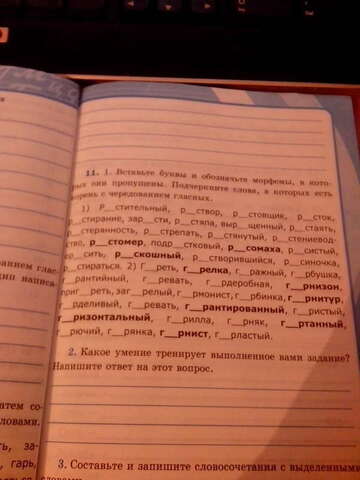 11. 1. Вставьте буквы и обозначьте морфемы, в кото-
рых они пропущены. Подчеркните слова, в которых есть
корень с чередованием гласных.
1) Р__стительный, р__створ, р__стовщик, р__сток,
р__стирание, зар__сти, р__стяпа, выр__щенный, р__стаять,
р__стерянность, р__стрепать, р__стянутый, р__стениевод-
ство, р__стомер, подр__стковый, р__сомаха, р__систый,
р__сить, р__скошный, р__створившийся, р__синочка,
р__стираться. 2) Г__реть, г__релка, г__ражный, г__рбушка,
г__рантийный, г__ревать, г__рдеробная, г__рнизон,
приг__реть, заг__релый, г__рмонист, г__рбинка, г__рнитур,
г__рделивый, г__ревать, г__рантированный, г__ристый,
г__ризонтальный, г__рилла, г__рняк, г__ртанный,
г__рючий, г__рянка, г__рнист, г__рластый.
2. Какое умение тренирует выполненное вами задание?
Напишите ответ на этот вопрос.
3. Составьте и запишите словосочетания с выделенными
словами.
ием глас
написа-
атем со-
ловами.
ть, за-
гарь,